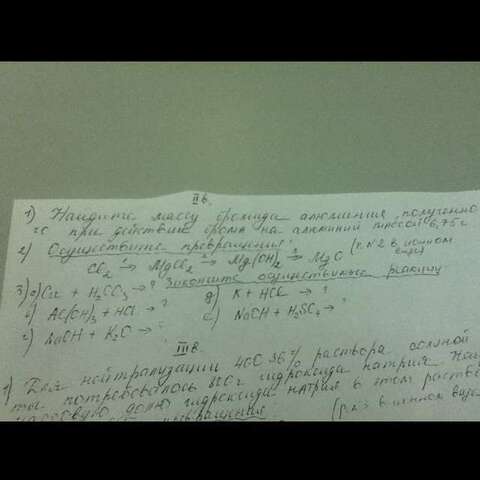 II в.
1) Найдите массу бромида алюминия, полученно-
го при действии брома на алюминий массой 6,75 г
2) Осуществите превращения:
Cl₂ →¹ MgCl₂ →² Mg(OH)₂ →³ MgO (р. №2 в ионном виде)
3) Закончите осуществимые реакции
а) Cu + H₂CO₃ → ? д) K + HCl → ?
б) Al(OH)₃ + HCl → ? е) NaOH + H₂SO₄ → ?
г) NaOH + K₂O → ?
III в.
1) Для нейтрализации 400 36% раствора соляной
ты потребовалось гидроксида натрия
массовую долю гидроксида натрия в этом раство
превращения (р. в ионном виде